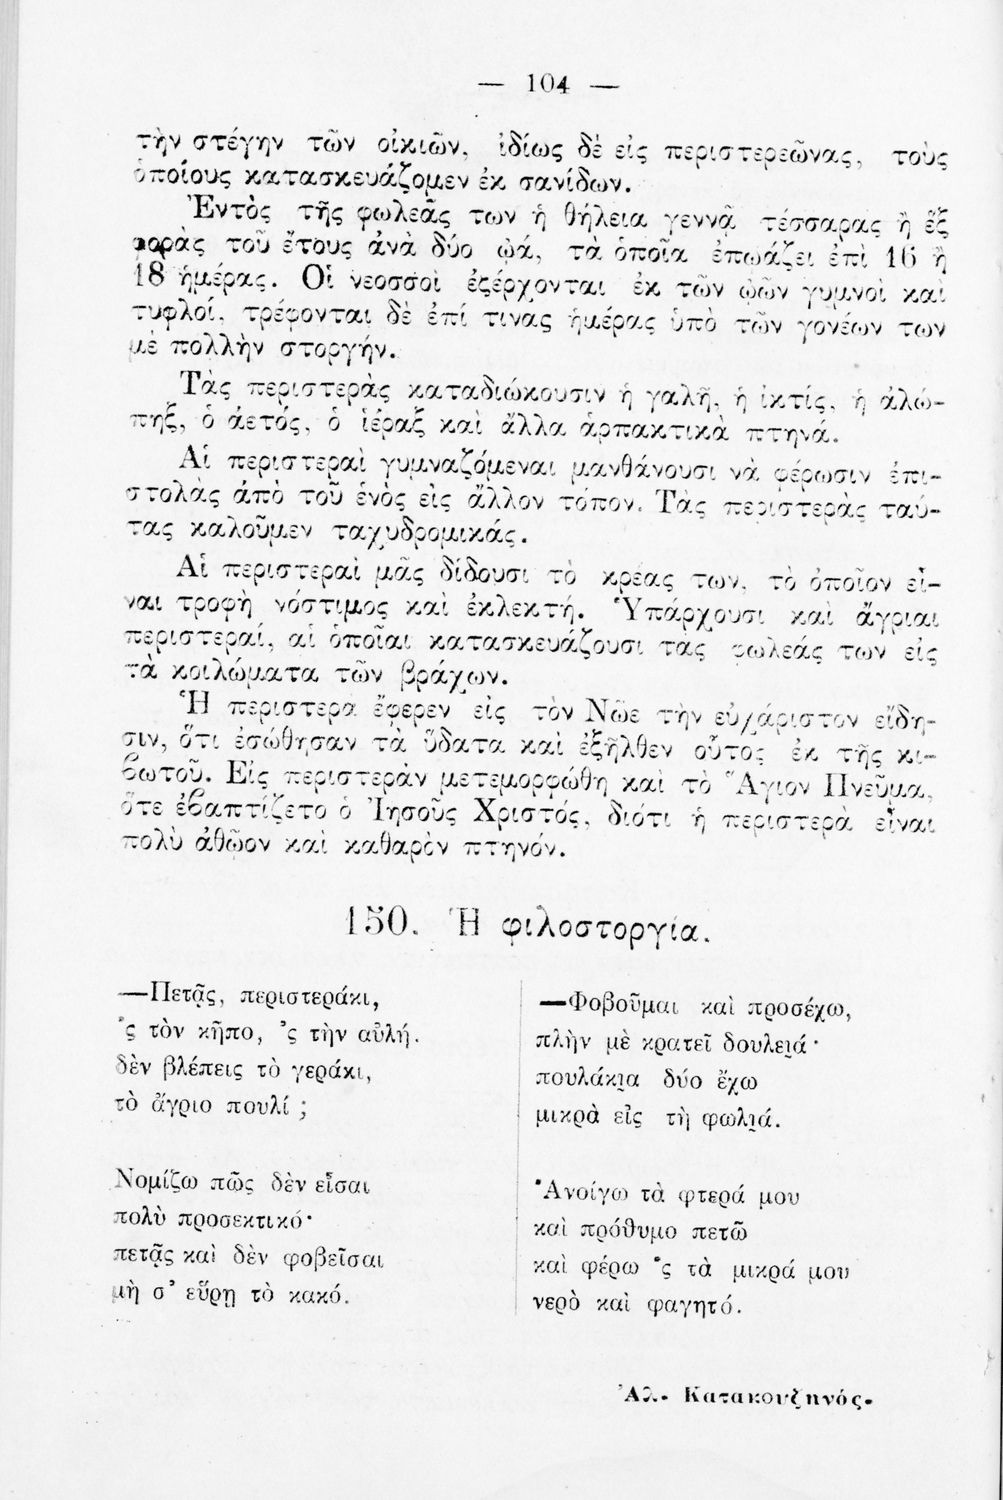 — 104 —
τὴν στέγην τῶν οἰκιῶν, ἰδίως δὲ εἰς περιστερεῶνας, τοὺς
ὁποίους κατασκευάζομεν ἐκ σανίδων.
Ἐντὸς τῆς φωλεᾶς των ἡ θήλεια γεννᾷ τέσσαρας ἢ ἓξ
φορὰς τοῦ ἔτους ἀνὰ δύο ᾠά, τὰ ὁποῖα ἐπωάζει ἐπὶ 16 ἢ
18 ἡμέρας. Οἱ νεοσσοὶ ἐξέρχονται ἐκ τῶν ᾠῶν γυμνοὶ καὶ
τυφλοί, τρέφονται δὲ ἐπί τινας ἡμέρας ὑπὸ τῶν γονέων των
μὲ πολλὴν στοργήν.
Τὰς περιστερὰς καταδιώκουσιν ἡ γαλῆ, ἡ ἰκτίς, ἡ ἀλώ-
πηξ, ὁ ἀετός, ὁ ἱέραξ καὶ ἄλλα ἁρπακτικὰ πτηνά.
Αἱ περιστεραὶ γυμναζόμεναι μανθάνουσι νὰ φέρωσιν ἐπι-
στολὰς ἀπὸ τοῦ ἑνὸς εἰς ἄλλον τόπον. Τὰς περιστερὰς ταύ-
τας καλοῦμεν ταχυδρομικάς.
Αἱ περιστεραὶ μᾶς δίδουσι τὸ κρέας των, τὸ ὁποῖον εἶ-
ναι τροφὴ νόστιμος καὶ ἐκλεκτή. Ὑπάρχουσι καὶ ἄγριαι
περιστεραί, αἱ ὁποῖαι κατασκευάζουσι τὰς φωλεάς των εἰς
τὰ κοιλώματα τῶν βράχων.
Ἡ περιστερὰ ἔφερεν εἰς τὸν Νῶε τὴν εὐχάριστον εἴδη-
σιν, ὅτι ἐσώθησαν τὰ ὕδατα καὶ ἐξῆλθεν οὗτος ἐκ τῆς κι-
βωτοῦ. Εἰς περιστερὰν μετεμορφώθη καὶ τὸ Ἅγιον Πνεῦμα,
ὅτε ἐβαπτίζετο ὁ Ἰησοῦς Χριστός, διότι ἡ περιστερὰ εἶναι
πολὺ ἀθῷον καὶ καθαρὸν πτηνόν.
150. Ἡ φιλοστοργία.
—Πετᾷς, περιστεράκι,
'ς τὸν κῆπο, 'ς τὴν αὐλή.
δὲν βλέπεις τὸ γεράκι,
τὸ ἄγριο πουλί ;
Νομίζω πῶς δὲν εἶσαι
πολὺ προσεκτικό·
πετᾷς καὶ δὲν φοβεῖσαι
μὴ σ' εὕρῃ τὸ κακό.
—Φοβοῦμαι καὶ προσέχω,
πλὴν μὲ κρατεῖ δουλει̯ά·
πουλάκι̯α δύο ἔχω
μικρὰ εἰς τὴ φωλι̯ά.
Ἀνοίγω τὰ φτερά μου
καὶ πρόθυμο πετῶ
καὶ φέρω 'ς τὰ μικρά μου
νερὸ καὶ φαγητό.
Ἀλ. Κατακουζηνός.